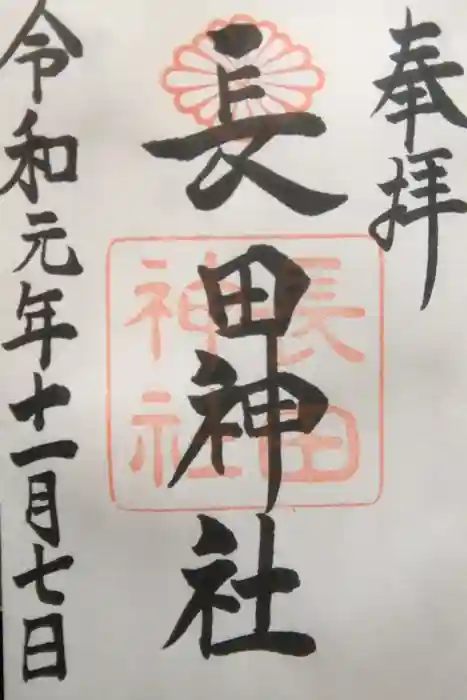 奉拝
長田神社
長田
神社
令和元年十一月七日